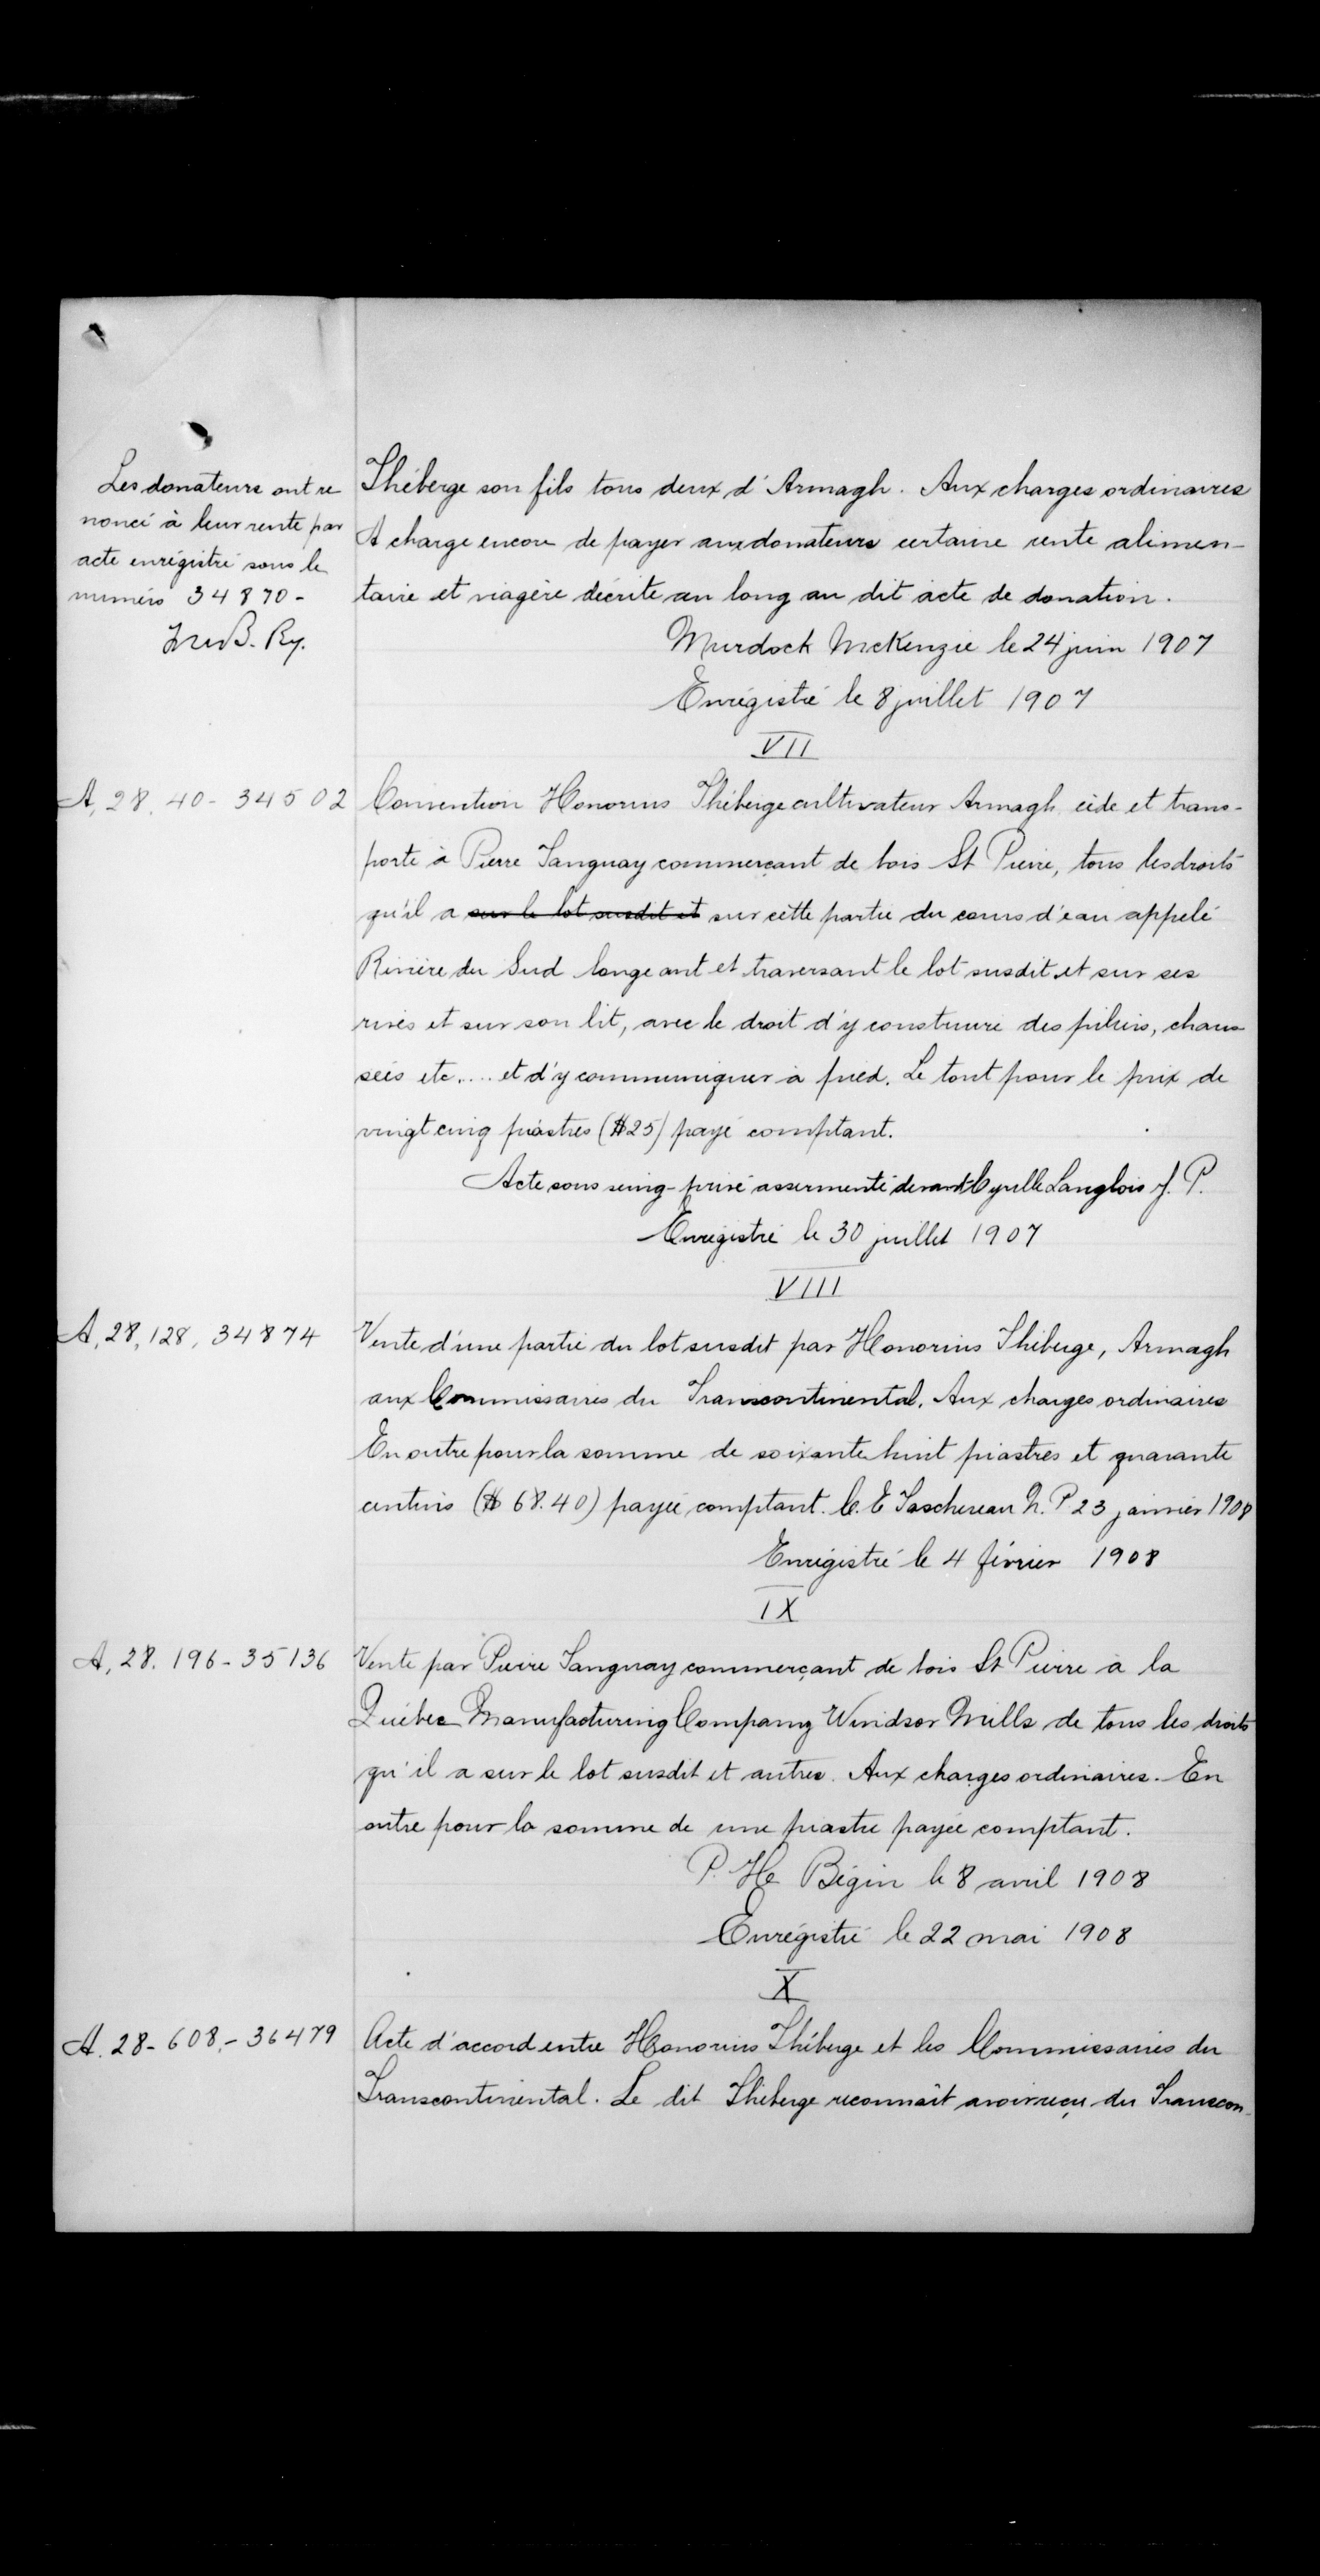 Les donateurs ont re
noncé à leur rente par
acte enrégistré sous le
numéro 34870-
Ry.
Théberge son fils tous deux d'Armagh. Aux charges ordinaires
A charge encore de payer aux donateurs certaine rente alimen-
taire et viagère décrite au long au dit acte de donation.
Murdock McKenzie le 24 juin 1907
Enrégistré le 8 juillet 1907
VII
A, 28. 40- 34502
Convention Honorius Théberge cultivateur Armagh cède et trans-
porte à Pierre Tanguay commerçant de bois St Pierre, tous les droits
qu'il a sur le lot susdit et sur cette partie du cours d'eau appelé
Rivière du Sud longeant et traversant le lot susdit et sur ses
rives et sur son lit, avec le droit d'y construire des piliers, chaus-
sées etc.... et d'y communiquer à pied. Le tout pour le prix de
vingt cinq piastres ($25) payé comptant.
Acte sous seing-privé assermenté devant Cyrille Langlois J. P.
Enrégistré le 30 juillet 1907
VIII
A, 28, 128, 34874
Vente d'une partie du lot susdit par Honorius Théberge, Armagh
aux Commissaires du Transcontinental. Aux charges ordinaires
En outre pour la somme de soixante huit piastres et quarante
centins ($ 68.40) payée comptant. C. E Taschereau N. P 23 janvier 1908
Enrégistré le 4 février 1908
IX
A, 28. 196-35136
Vente par Pierre Tanguay commerçant de bois St Pierre à la
Québec Manufacturing Company Windsor Mills de tous les droits
qu'il a sur le lot susdit et autres. Aux charges ordinaires. En
outre pour la somme de une piastre payée comptant.
P. H. Bégin le 8 avril 1908
Enrégistré le 22 mai 1908
X
A. 28-608.-36479
Acte d'accord entre Honorius Théberge et les Commissaires du
Transcontinental. Le dit Théberge reconnaît avoir reçu du Transcon-